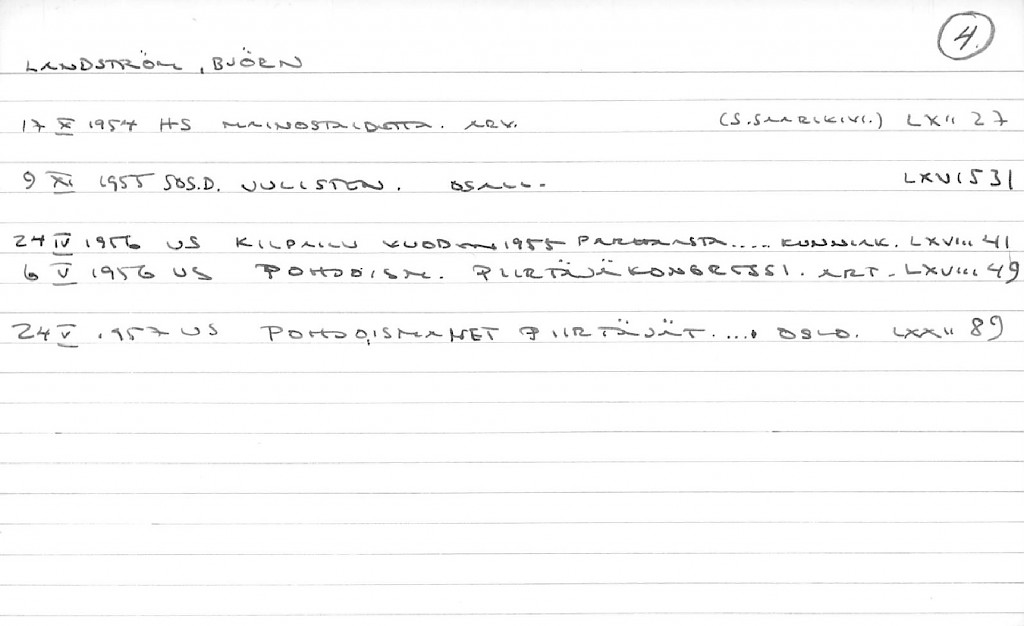 4.
LANDSTRÖM, BJÖRN
17 X 1954 HS MAINOSTAIDETTA. ARV. (S. SAARIKIVI.) LXII 27
9 XI 1955 SOS.D. JULISTEN. OSALL. LXVI 531
24 IV 1956 US KILPAILU VUODEN 1955 PARHAISTA..... KUNNIAK. LXVIII 41
6 V 1956 US POHJOISM. PIIRTÄJÄKONGRESSI. ART. LXVIII 49
24 V 1957 US POHJOISMAISET PIIRTÄJÄT.... OSLO. LXXII 89